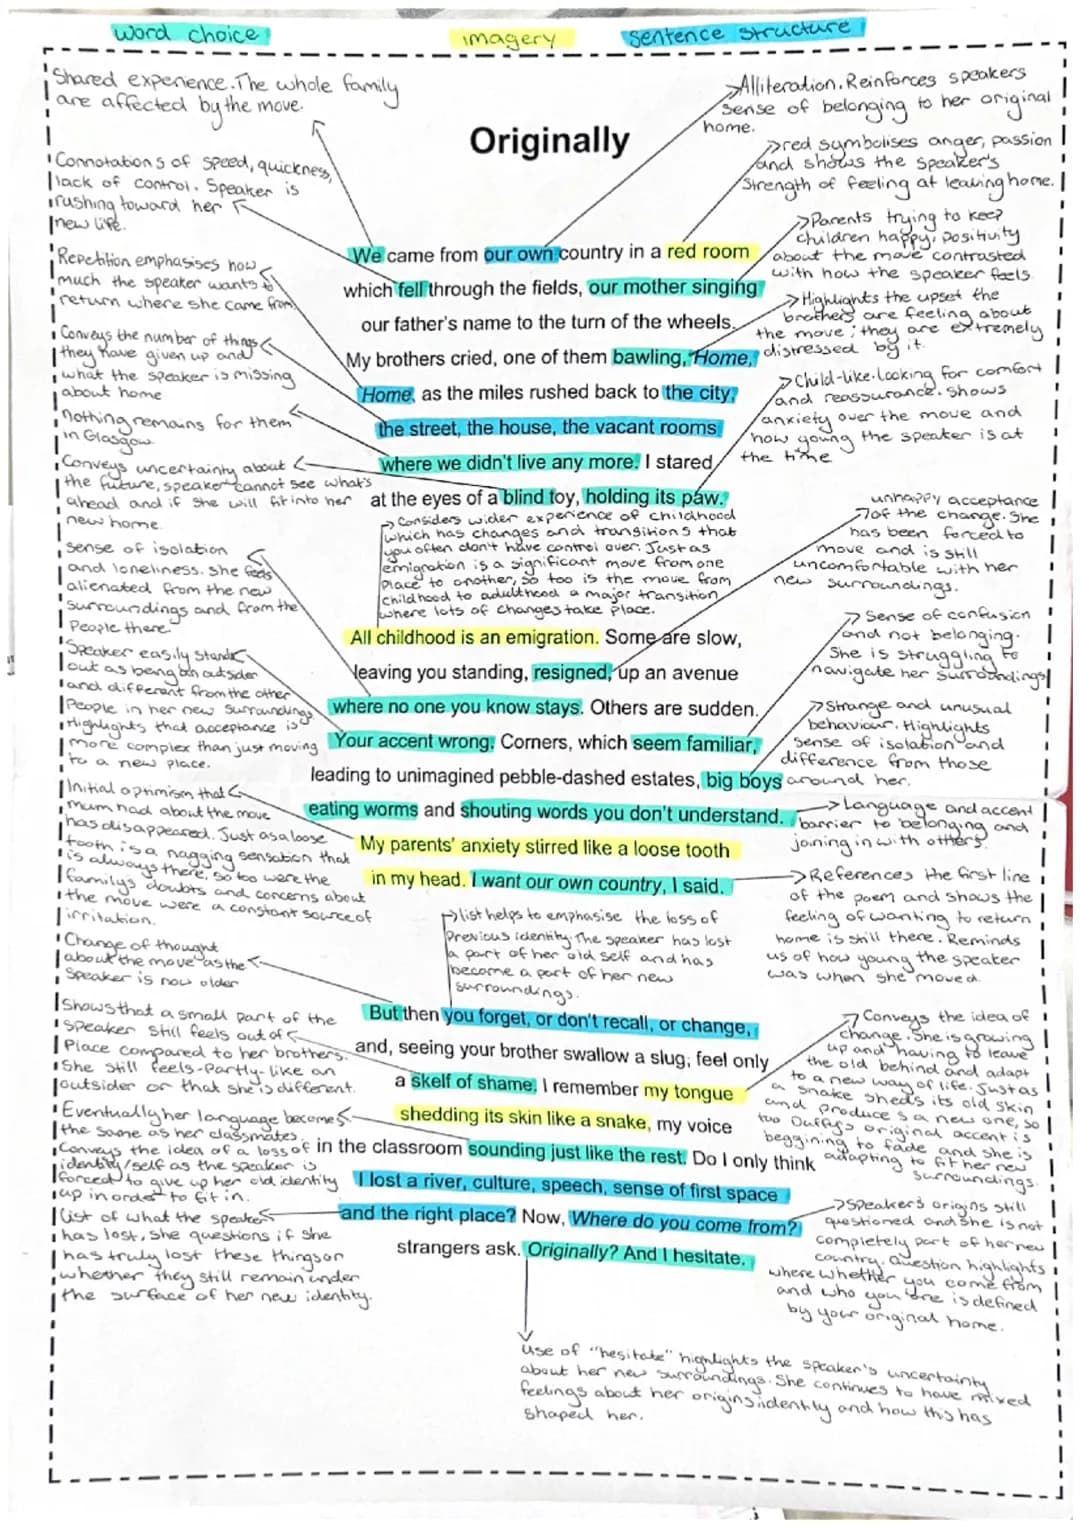 word choice
imagery
sentence structure
Shared experience. The whole family
are affected by the move.
Alliteration. Reinforces speakers
sense of belonging to her original
home.
Originally
Connotations of speed, quickness,
lack of control. Speaker is
rushing toward her
new life.
red symbolises anger, passion
and shows the speaker's
strength of feeling at leaving home.
Parents trying to keep
children happy, positivity
about the move contrasted
with how the speaker feels
Repetition emphasises how
much the speaker wants to
return where she came from
Highlights the upset the
brothers are feeling about
the move; they are extremely
distressed by it.
Conveys the number of things
they have given up and
what the speaker is missing
about home
Child-like. Looking for comfort
and reassurance. Shows
anxiety over the move and
how young the speaker is at
the time
Nothing remains for them
in Glasgow
Conveys uncertainty about
the future, speaker cannot see what's
ahead and if she will fit into her
new home.
We came from our own country in a red room
which fell through the fields, our mother singing
our father's name to the turn of the wheels.
My brothers cried, one of them bawling, Home,
Home, as the miles rushed back to the city,
the street, the house, the vacant rooms
where we didn't live any more. I stared
at the eyes of a blind toy, holding its paw.
Considers wider experience of childhood
which has changes and transitions that
you often don't have control over. Just as
emigration is a significant move from one
place to another, so too is the move from
childhood to adulthood a major transition
where lots of changes take place.
unhappy acceptance
of the change. She
has been forced to
move and is still
uncomfortable with her
new surroundings.
sense of isolation
and loneliness. she feels
alienated from the new
surroundings and from the
People there.
Sense of confusion
and not belonging.
She is struggling to
navigate her surroundings
Speaker easily stands
out as being an outsider
and different from the other
People in her new surroundings.
Highlights that acceptance is
more complex than just moving
to a new place.
Strange and unusual
behaviour. Highlights
sense of isolation and
difference from those
around her.
All childhood is an emigration. Some are slow,
leaving you standing, resigned, up an avenue
where no one you know stays. Others are sudden.
Your accent wrong. Corners, which seem familiar,
leading to unimagined pebble-dashed estates, big boys
eating worms and shouting words you don't understand.
My parents' anxiety stirred like a loose tooth
in my head. I want our own country, I said.
Initial optimism that
mum had about the move
has disappeared. Just as a loose
tooth is a nagging sensation that
is always there, so too were the
family's doubts and concerns about
the move were a constant source of
irritation.
Language and accent
barrier to belonging and
joining in with others.
References the first line
of the poem and shows the
feeling of wanting to return
home is still there. Reminds
us of how young the speaker
was when she moved.
list helps to emphasise the loss of
previous identity. The speaker has lost
a part of her old self and has
become a part of her new
surroundings.
Change of thought
about the move as the
speaker is now older
Shows that a small part of the
speaker still feels out of
Place compared to her brothers.
She still feels-Partly-like an
outsider or that she is different.
Conveys the idea of
change. She is growing
up and having to leave
the old behind and adapt
to a new way of life. Just as
a snake sheds its old skin
and produces a new one, so
too Duffy's original accent is
beggining to fade and she is
adapting to fit her new
surroundings.
But then you forget, or don't recall, or change,
and, seeing your brother swallow a slug, feel only
a skelf of shame. I remember my tongue
shedding its skin like a snake, my voice
in the classroom sounding just like the rest. Do I only think
I lost a river, culture, speech, sense of first space
and the right place? Now, Where do you come from?
strangers ask. Originally? And I hesitate.
Eventually her language becomes
the same as her classmates.
Conveys the idea of a loss of
identity/self as the speaker is
forced to give up her old identity
up in order to fit in.
List of what the speaker
has lost, she questions if she
has truly lost these things or
whether they still remain under
the surface of her new identity.
Speaker's origins still
questioned and she is not
completely part of her new
country. Question highlights
where whether you come from
and who you are is defined
by your original home.
Use of "hesitate" highlights the speaker's uncertainty
about her new surroundings. She continues to have mixed
feelings about her origins, identity and how this has
shaped her.